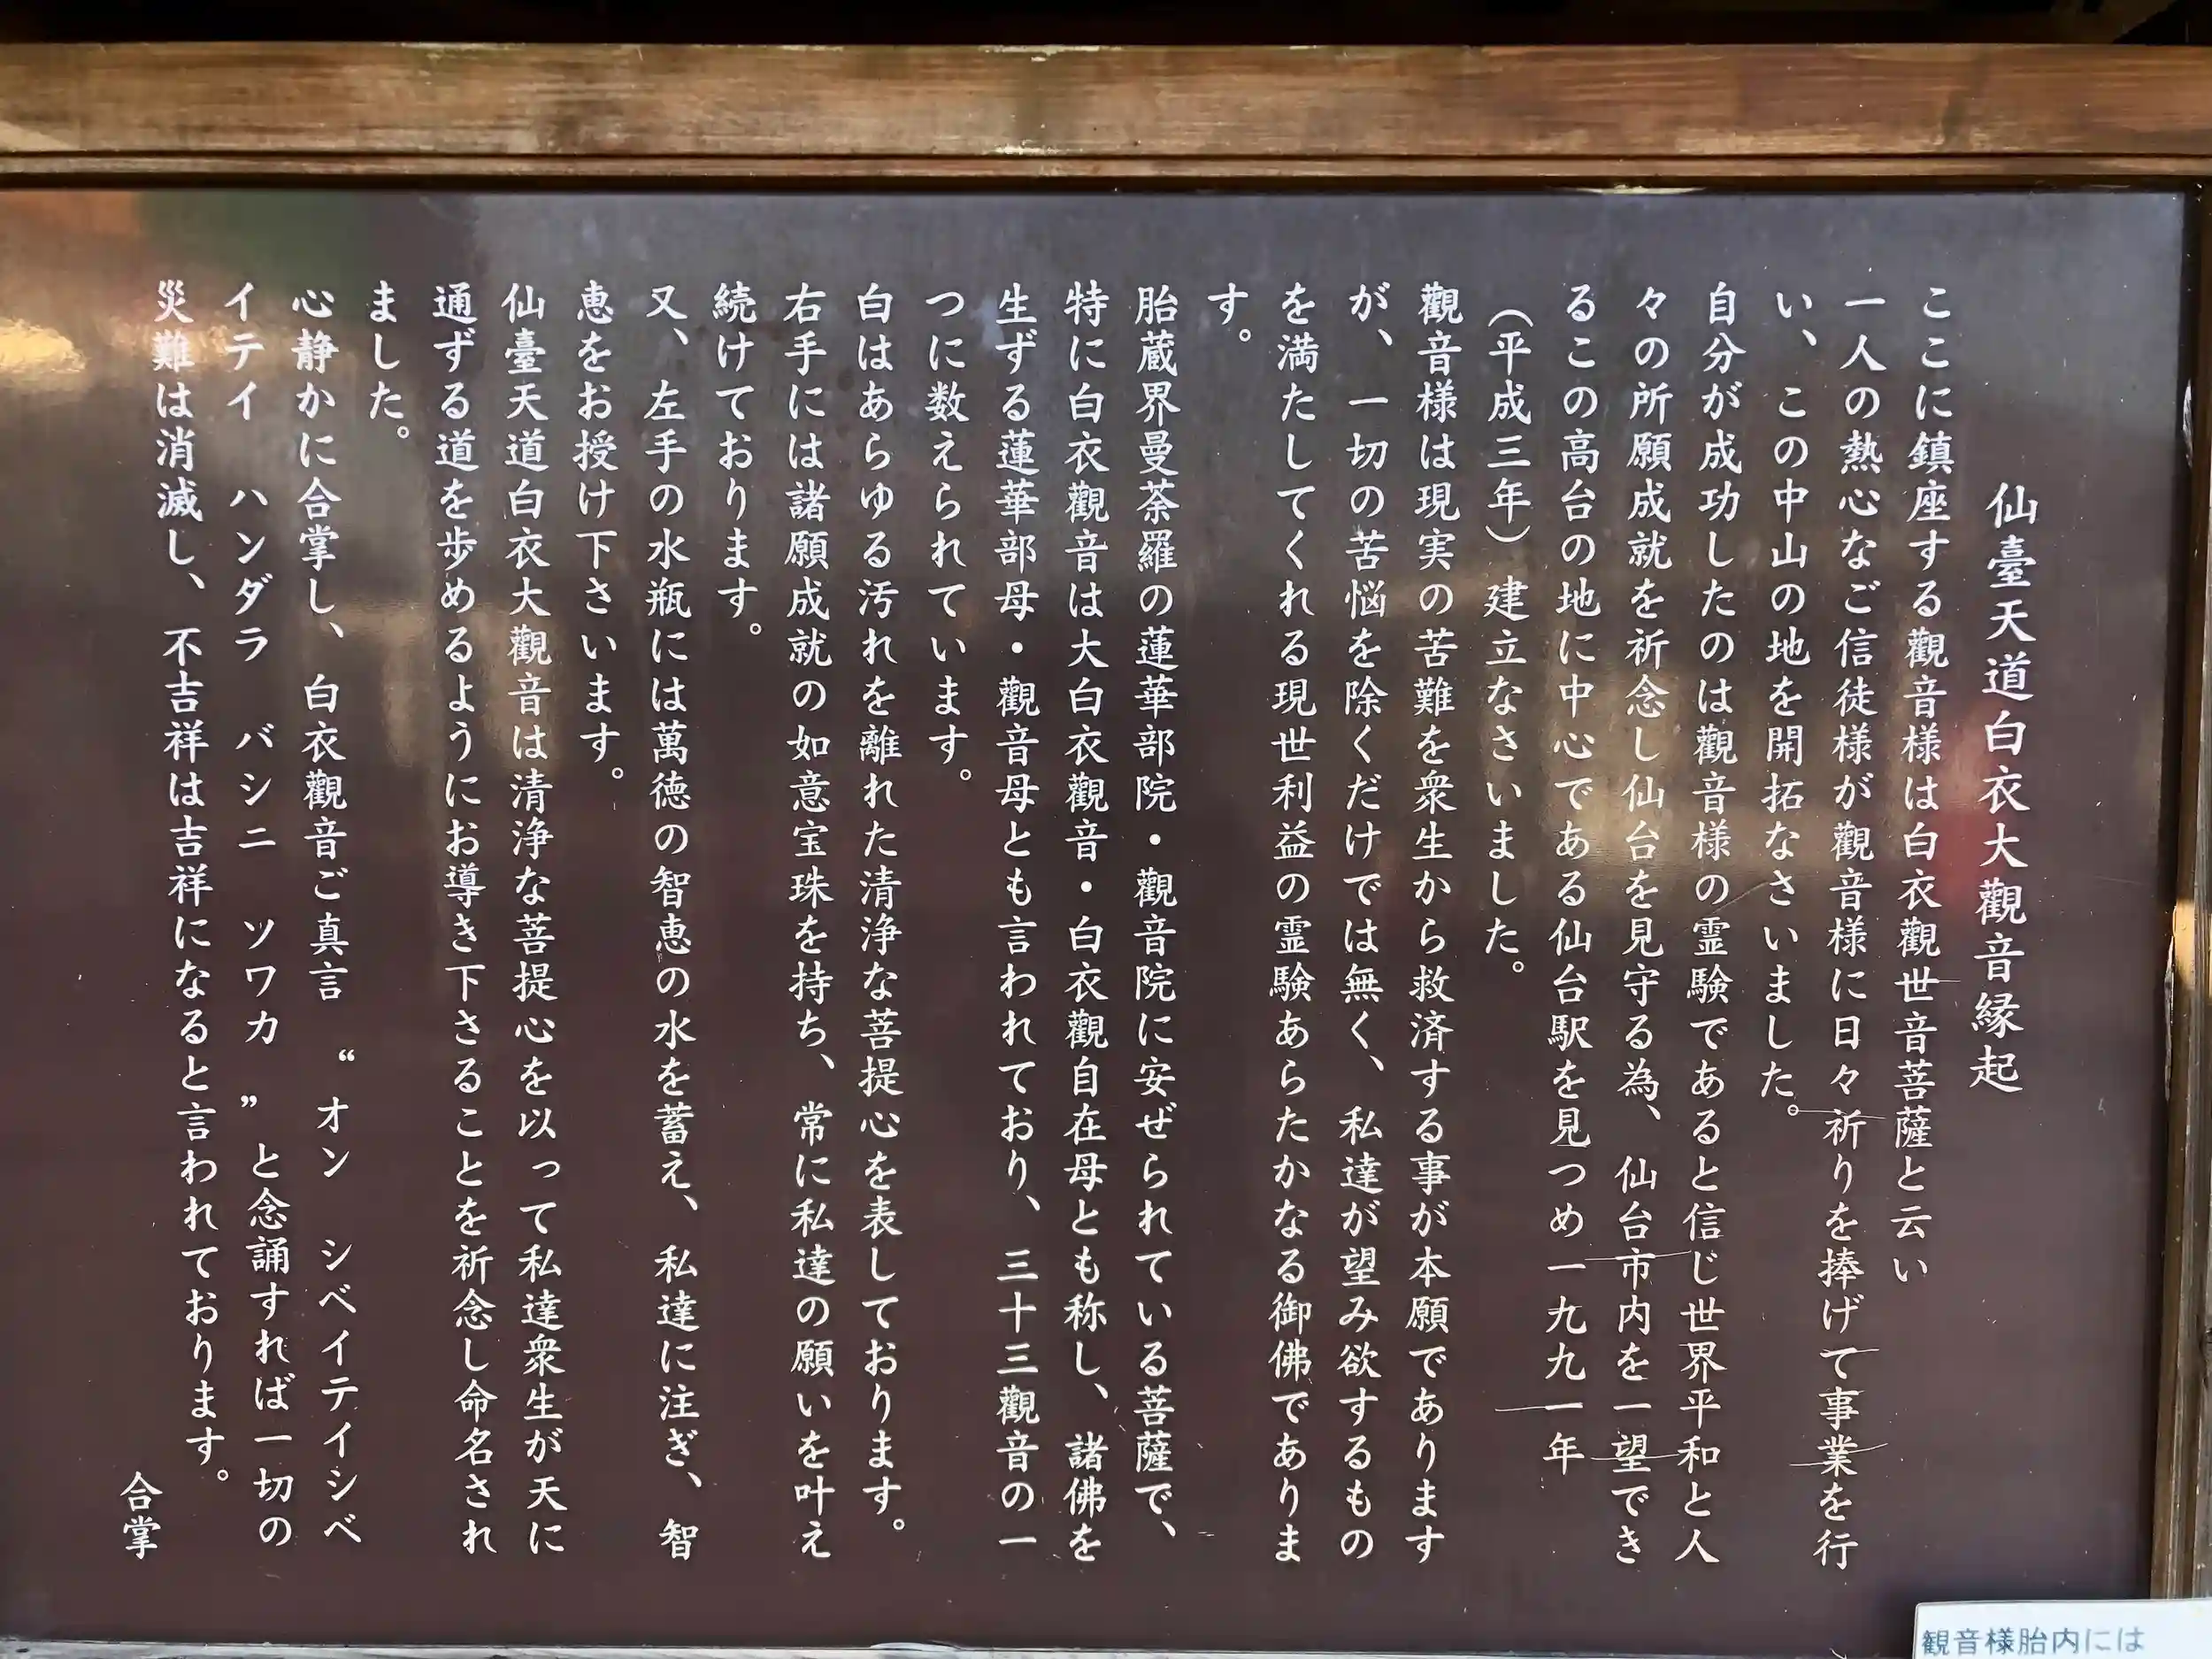 仙臺天道白衣大觀音縁起
ここに鎮座する觀音様は白衣觀世音菩薩と云い
一人の熱心なご信徒様が觀音様に日々祈りを捧げて事業を行
い、この中山の地を開拓なさいました。
自分が成功したのは觀音様の霊験であると信じ世界平和と人
々の所願成就を祈念し仙台を見守る為、仙台市内を一望でき
るこの高台の地に中心である仙台駅を見つめ一九九一年
（平成三年）建立なさいました。
觀音様は現実の苦難を衆生から救済する事が本願であります
が、一切の苦悩を除くだけでは無く、私達が望み欲するもの
を満たしてくれる現世利益の霊験あらたかなる御佛でありま
す。
胎蔵界曼荼羅の蓮華部院・觀音院に安ぜられている菩薩で、
特に白衣觀音は大白衣觀音・白衣觀自在母とも称し、諸佛を
生ずる蓮華部母・觀音母とも言われており、三十三觀音の一
つに数えられています。
白はあらゆる汚れを離れた清浄な菩提心を表しております。
右手には諸願成就の如意宝珠を持ち、常に私達の願いを叶え
続けております。
又、左手の水瓶には萬徳の智恵の水を蓄え、私達に注ぎ、智
恵をお授け下さいます。
仙臺天道白衣大觀音は清浄な菩提心を以って私達衆生が天に
通ずる道を歩めるようにお導き下さることを祈念し命名され
ました。
心静かに合掌し、白衣觀音ご真言 “オン シベイテイシベ
イテイ ハンダラ バシニ ソワカ ”と念誦すれば一切の
災難は消滅し、不吉祥は吉祥になると言われております。
合掌
観音様胎内には